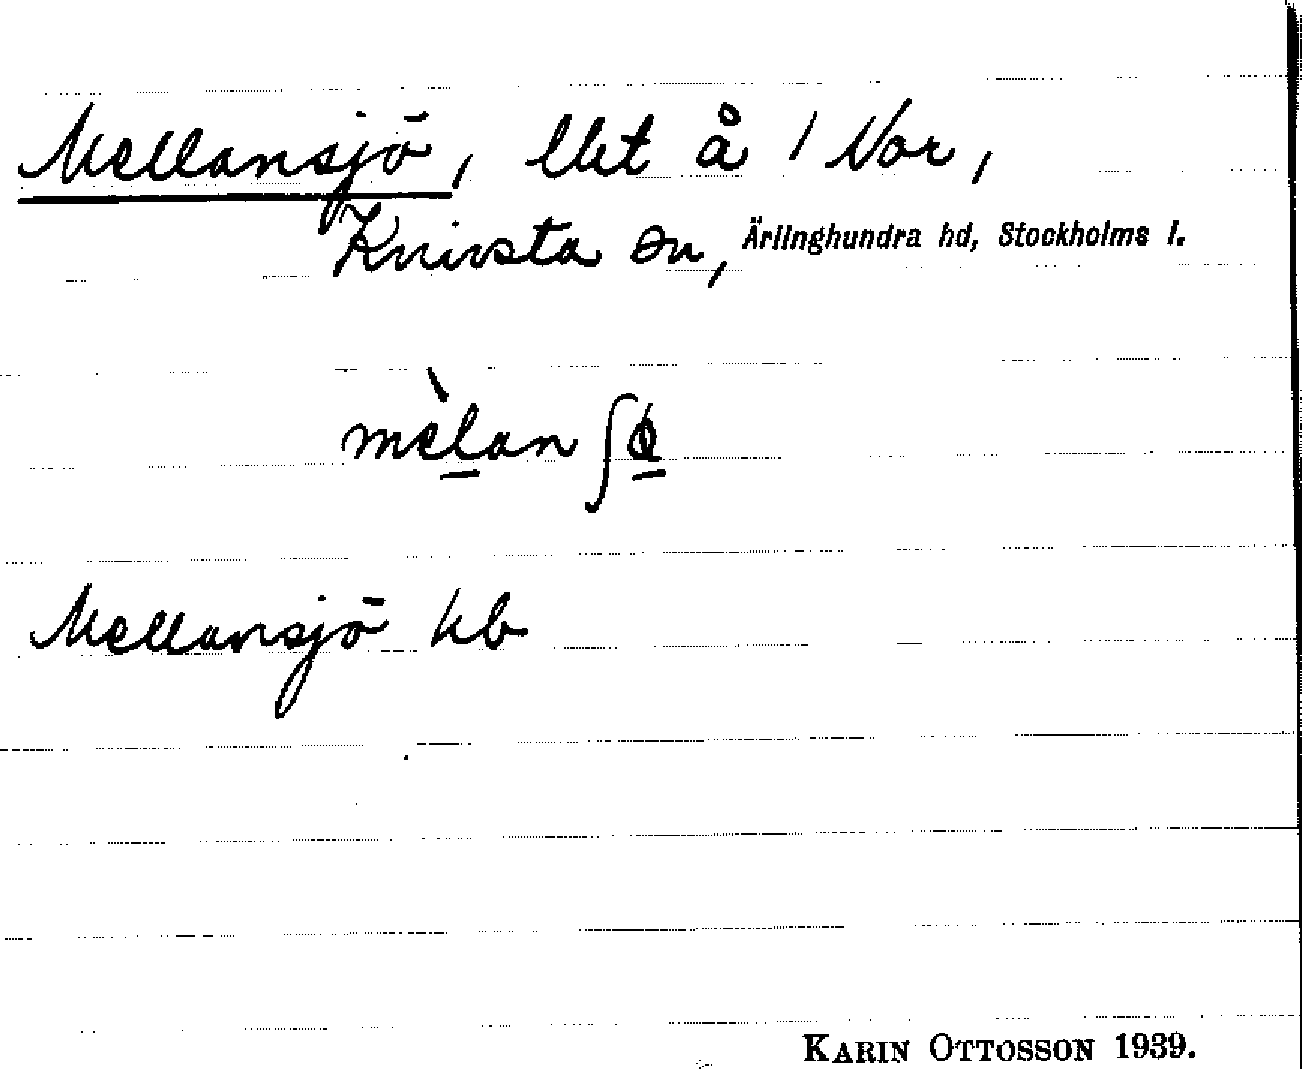 Mellansjö, lht å 1 Nor,
Knivsta sn, Ärlinghundra hd, Stockholms l.
mèlan ʃø
Mellansjö kb
KARIN OTTOSSON 1939.